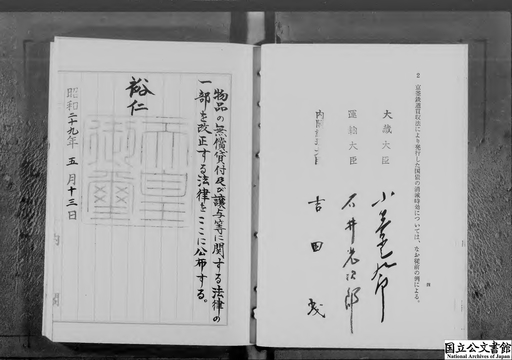 2 京釜鉄道買収法により発行した国債の消滅時効については、なお従前の例による。
大蔵大臣 小笠原三九郎
運輸大臣 石井光次郎
内閣総理大臣 吉田茂
物品の無償貸付及び譲与等に関する法律の
一部を改正する法律をここに公布する。
裕仁
天皇
御璽
昭和二十九年五月十三日
内閣
国立公文書館
National Archives of Japan